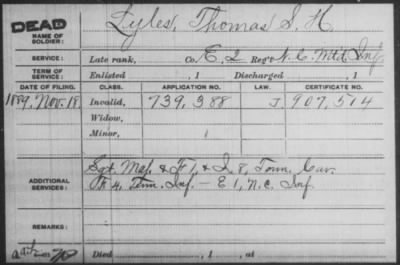 DEAD
Lyles, Thomas S. H.
NAME OF SOLDIER:
SERVICE: Late rank, Co. E, 2 Reg't N. C. Mtd. Inf.
TERM OF SERVICE: Enlisted , 1 Discharged , 1
DATE OF FILING. CLASS. APPLICATION NO. LAW. CERTIFICATE NO.
1889, Nov. 18. Invalid, 739,388 J. 907,514
Widow,
Minor,
ADDITIONAL SERVICES:
Sgt. Maj. & F 1, & I. 8, Tenn. Cav.
4, Tenn. Inf. — E 1, N.C. Inf.
REMARKS:
Died , 1 , at